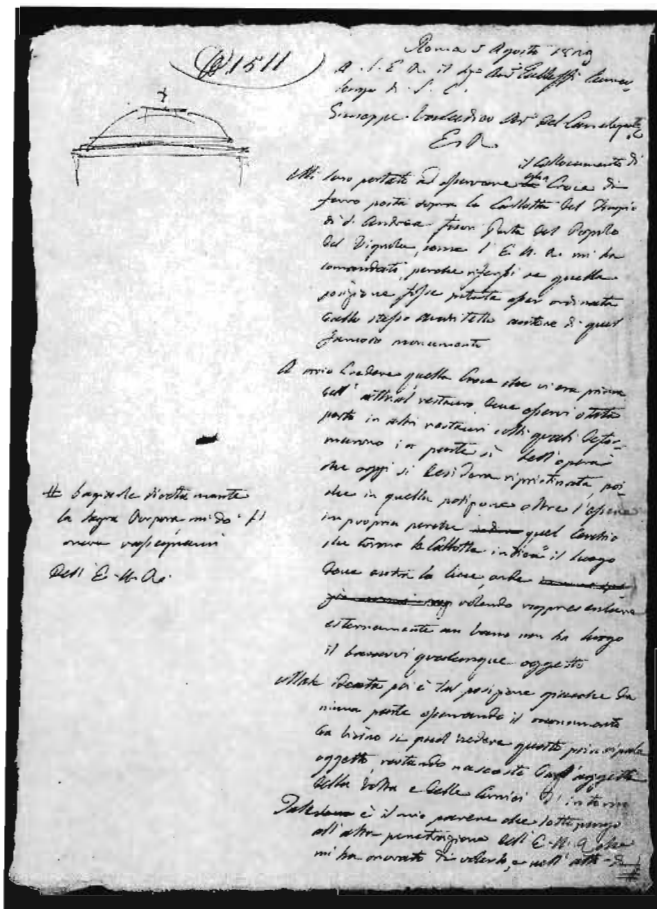 1511
Roma 5 Agosto 1829
A. S. E. R. il Sig.
di S. C.
Giuseppe Valadier
E. R.
il collocamento di
Mi sono portato ad osservare Croce di
ferro posta sopra la Callotta del Tempio
di S. Andrea fuori Porta del Popolo
del Vignola, come l'E. V. R. mi ha
comandato, perche se quella
posizione fosse stata ordinata
dallo stesso Architetto autore di quel
famoso monumento
A mio Credere quella Croce che vi era prima
dell' restauro deve esservi stata
posta in altri restauri colli quali
in parte sì dell'opera
che oggi si desidera ripristinata, poi
che in quella posizione oltre l'essere
impropria perche quel Cerchio
che torna la Callotta il luogo
dove entra la luce, onde
volendo rappresentare
esternamente un vano non ha luogo
il qualunque oggetto
Male ideata poi è tal posizione giacche da
niuna parte osservando il monumento
da vicino si puol vedere questo principale
oggetto restando nascosto dall'aggetto
della Volta e delle Cornici d'intorno
è il mio parere che sottopongo
all'alta penetrazione dell'E. V. R. che
mi ha onorato di volerlo, e nell' atto di
#
# bagiarle divotamente
la Sagra Porpora mi do l'
onore rassegnarmi
Dell'E. V. R.